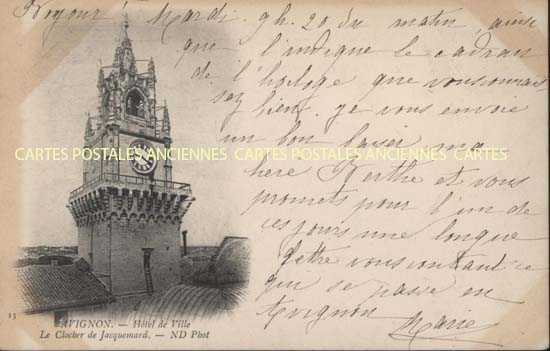 Mardi. 9h. 20 du matin ainsi
que l'indique le cadran
de l'horloge que vous connais
sez bien. je vous envoie
un bon baiser ma
chère Berthe et vous
promets pour l'un de
ces jours une longue
lettre vous contant ce
qui se passe en
Avignon Marie
CARTES POSTALES ANCIENNES CARTES POSTALES ANCIENNES CARTES
13
AVIGNON. — Hôtel de Ville
Le Clocher de Jacquemard. — ND Phot